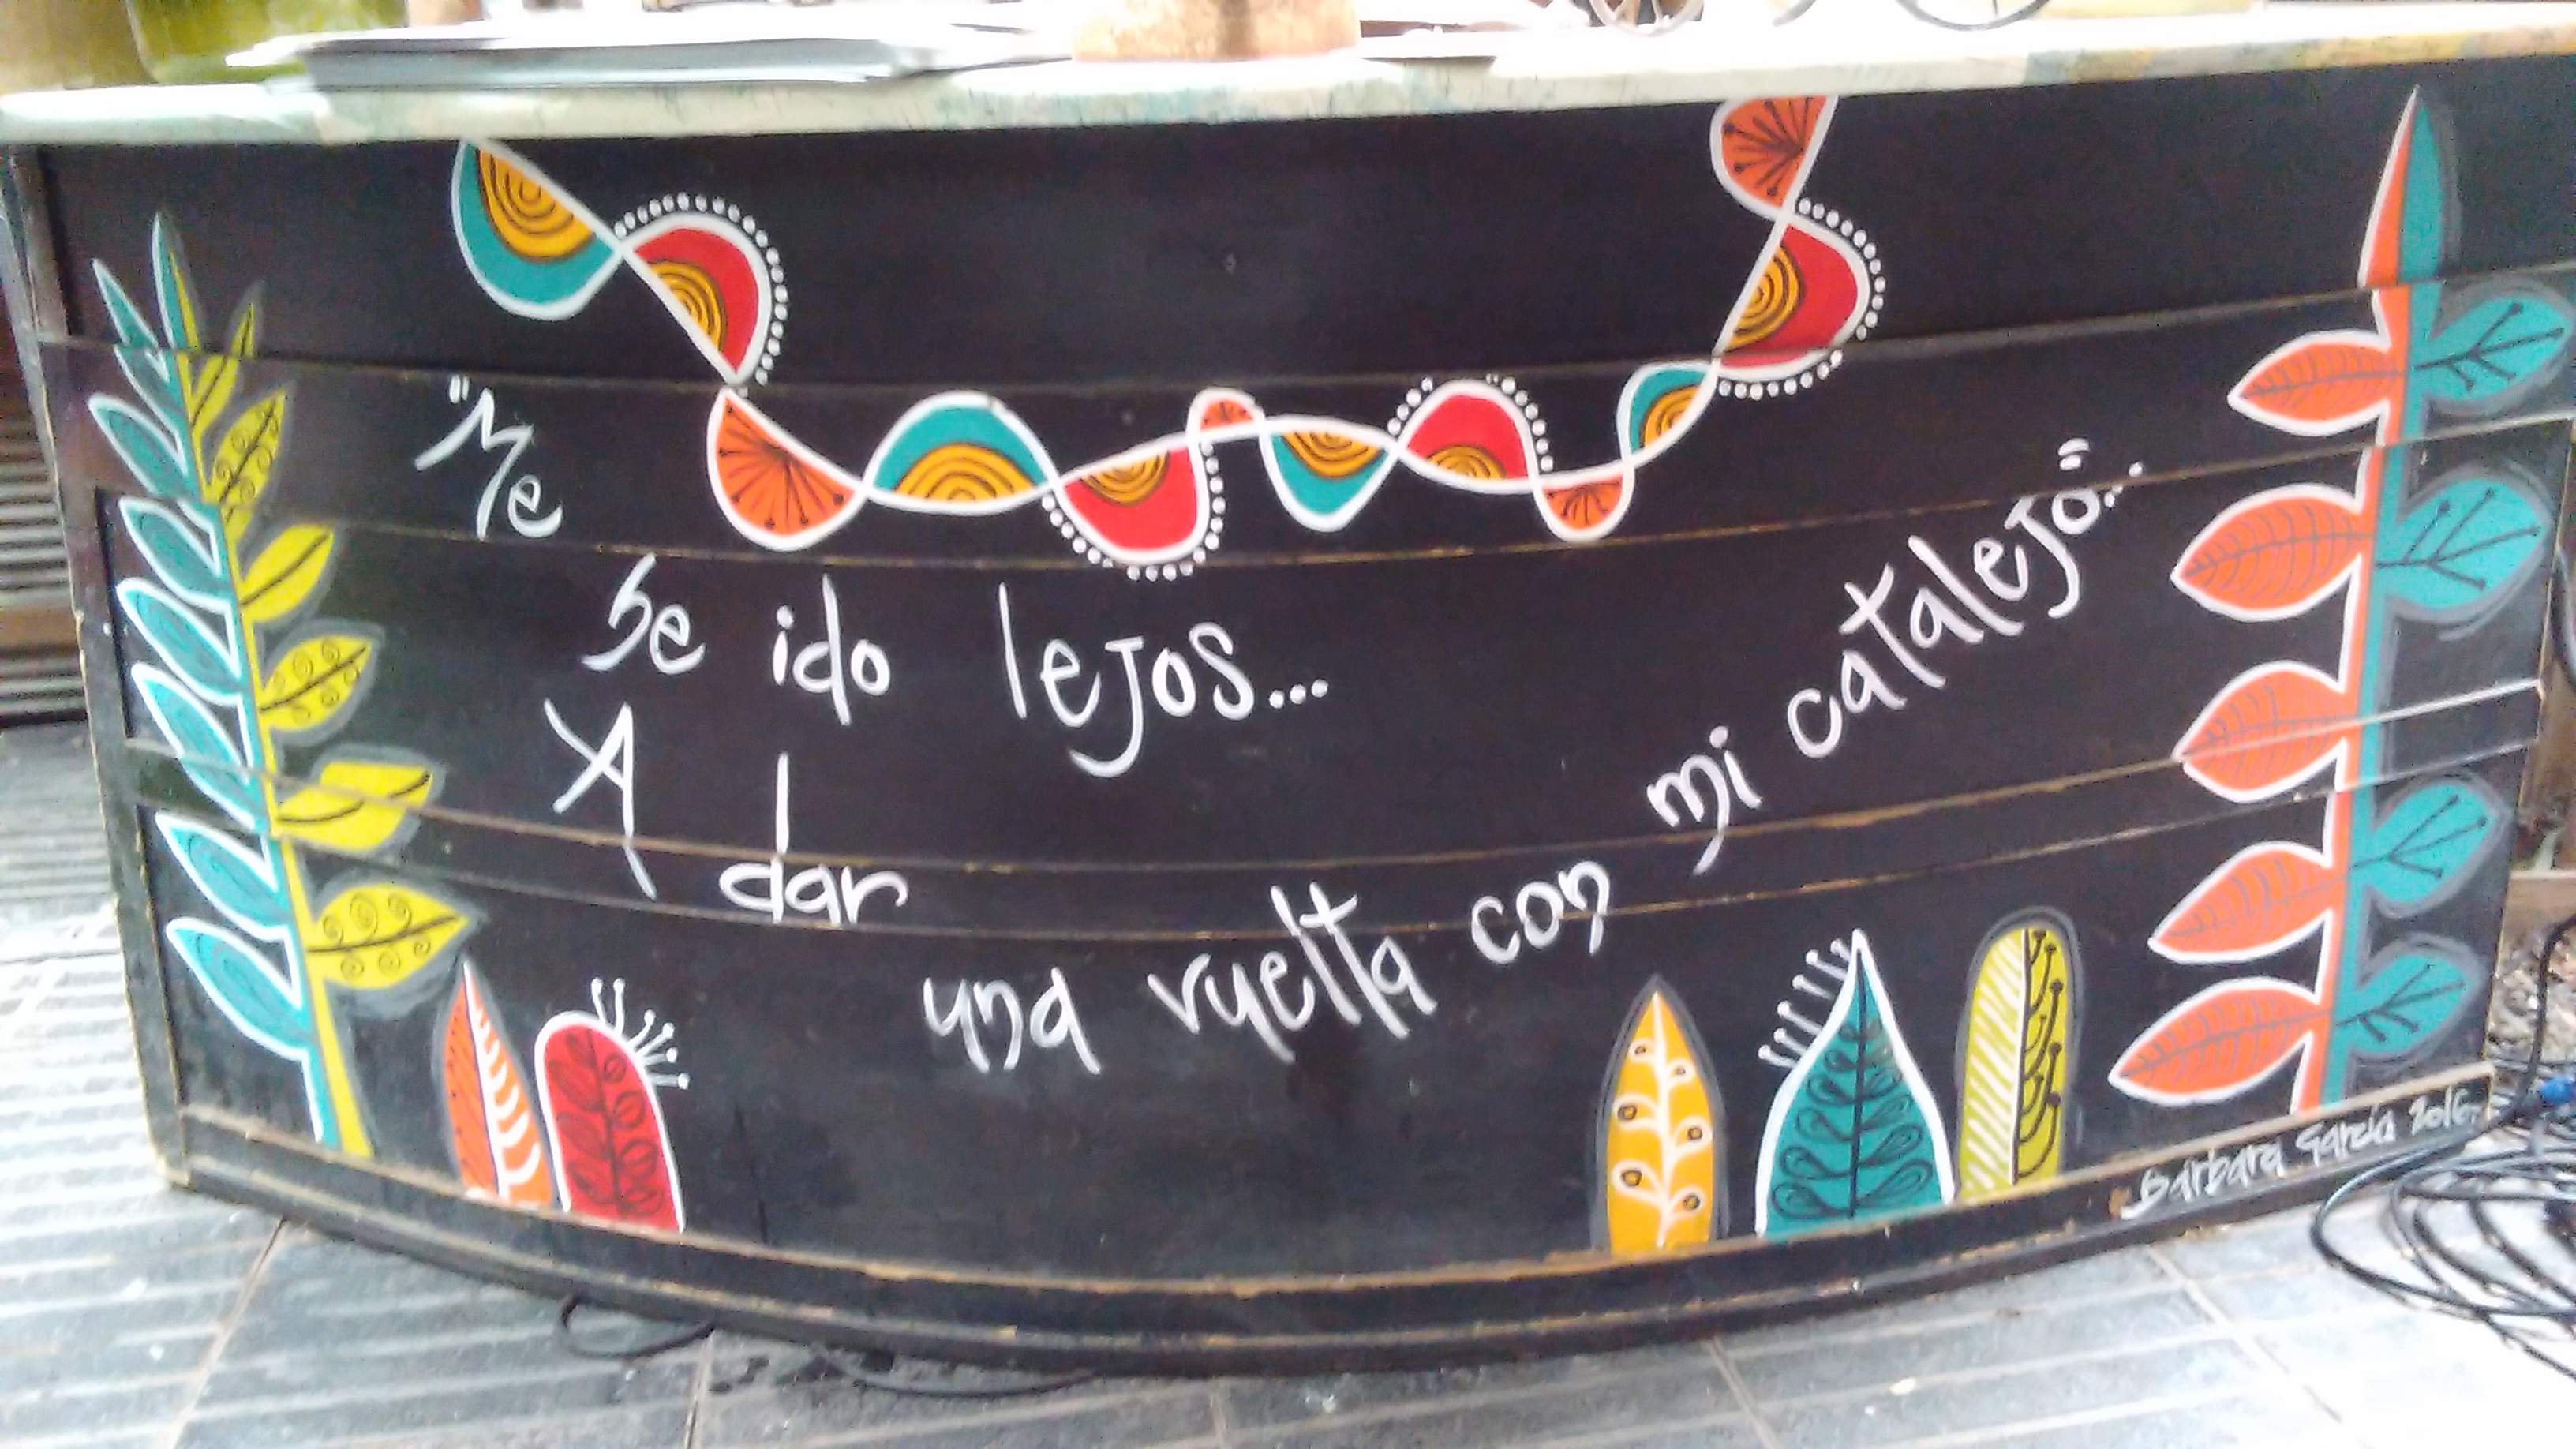 "Me
he ido lejos...
A dar
una vuelta con mi catalejo"...
Bárbara García 2016.